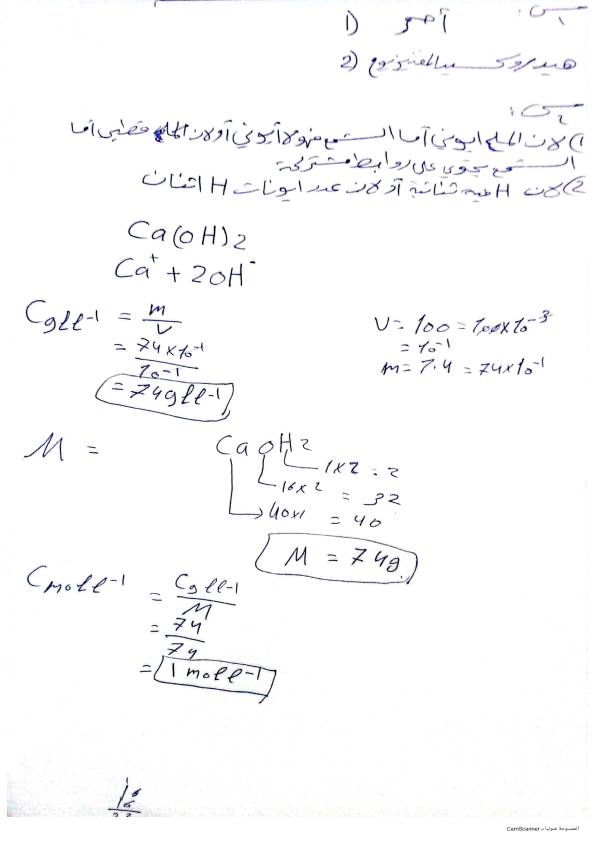 س١:
1) أحمر
2) هيدروكسيد المغنيزيوم
س٢:
1) لان الملح ايوني أما الشمع فهو لا أيوني أو لان الملح قطبي أما
الشمع يحتوي على روابط مشتركة
2) لان H فيه ثنائية أو لان عدد ايونات H اثنان
Ca(OH)2
Ca⁺ + 2OH⁻
Cgℓℓ⁻¹ = m/v
V = 100 = 100×10⁻³
= 74×10⁻¹/10⁻¹
= 10⁻¹
m = 7.4 = 74×10⁻¹
= 74gℓℓ⁻¹
M = CaOH2
1×2 = 2
16×2 = 32
40×1 = 40
M = 74g
Cmolℓ⁻¹ = Cgℓℓ⁻¹/M
= 74/74
= 1molℓ⁻¹
16
6
الممسوحة ضوئيا بـ CamScanner